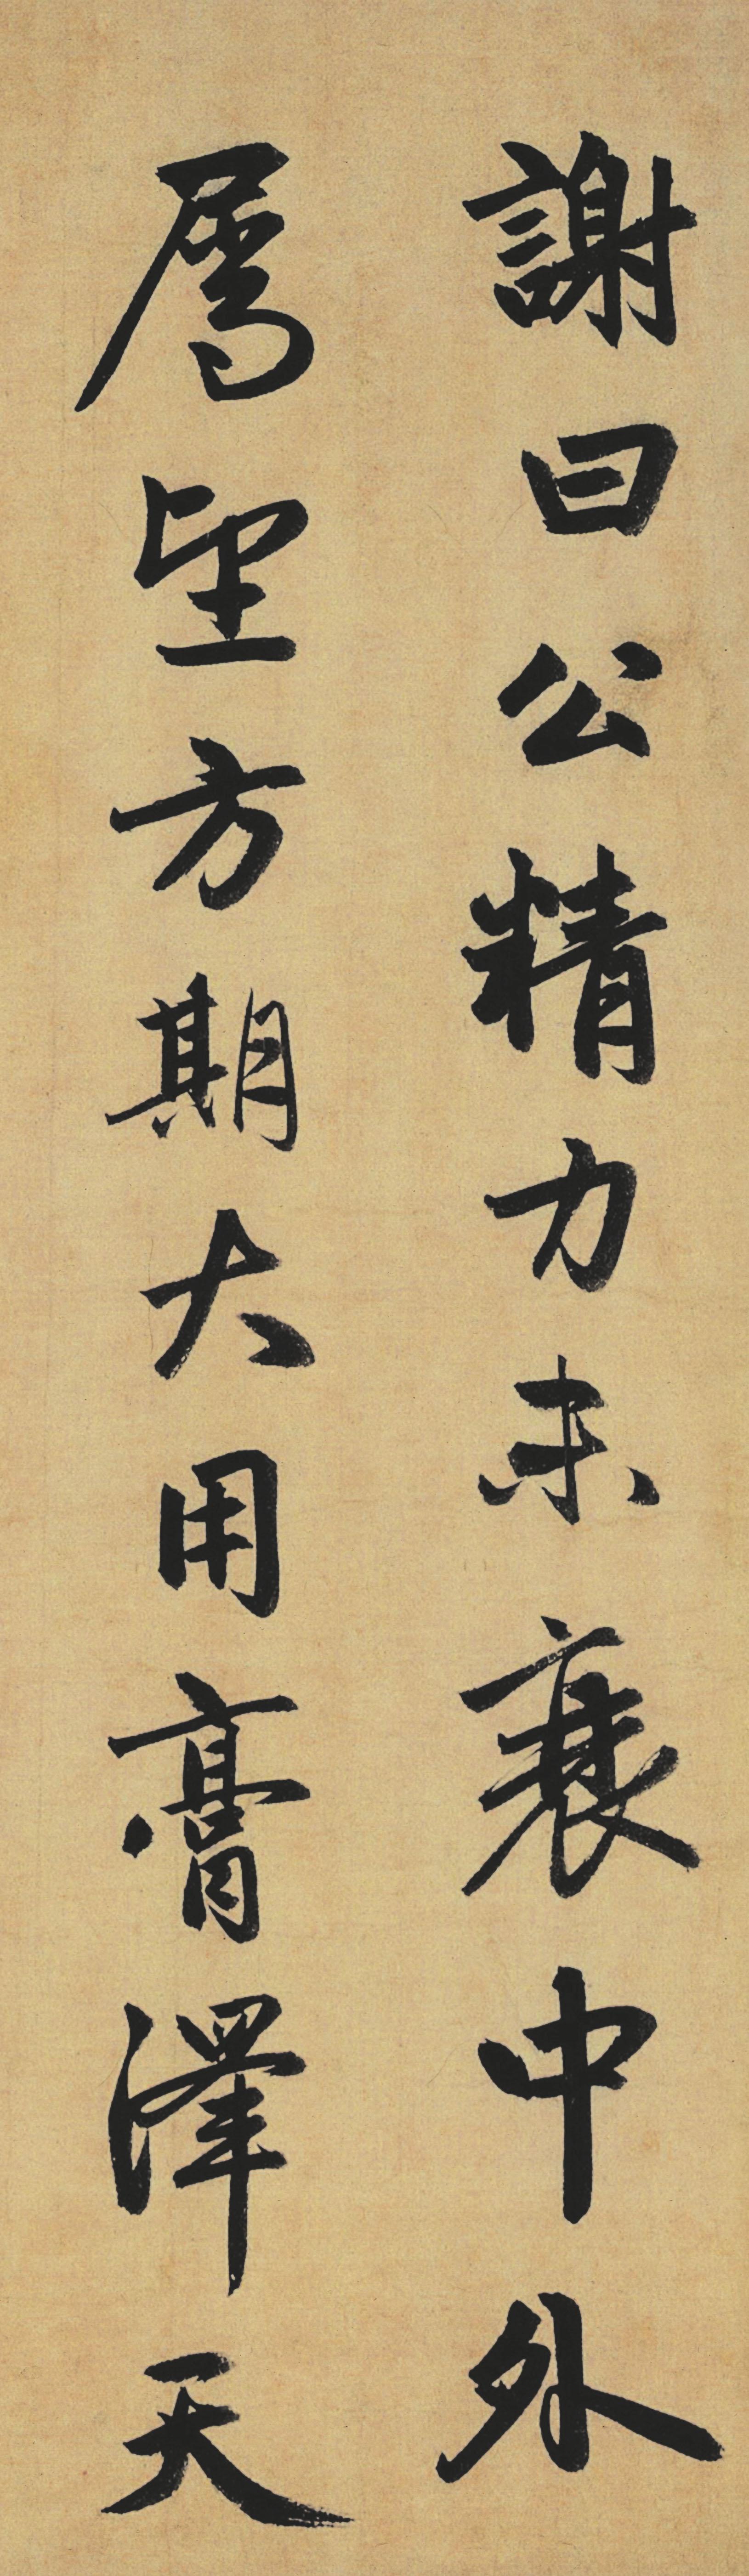 謝曰公精力未衰中外
屬望方期大用膏澤天